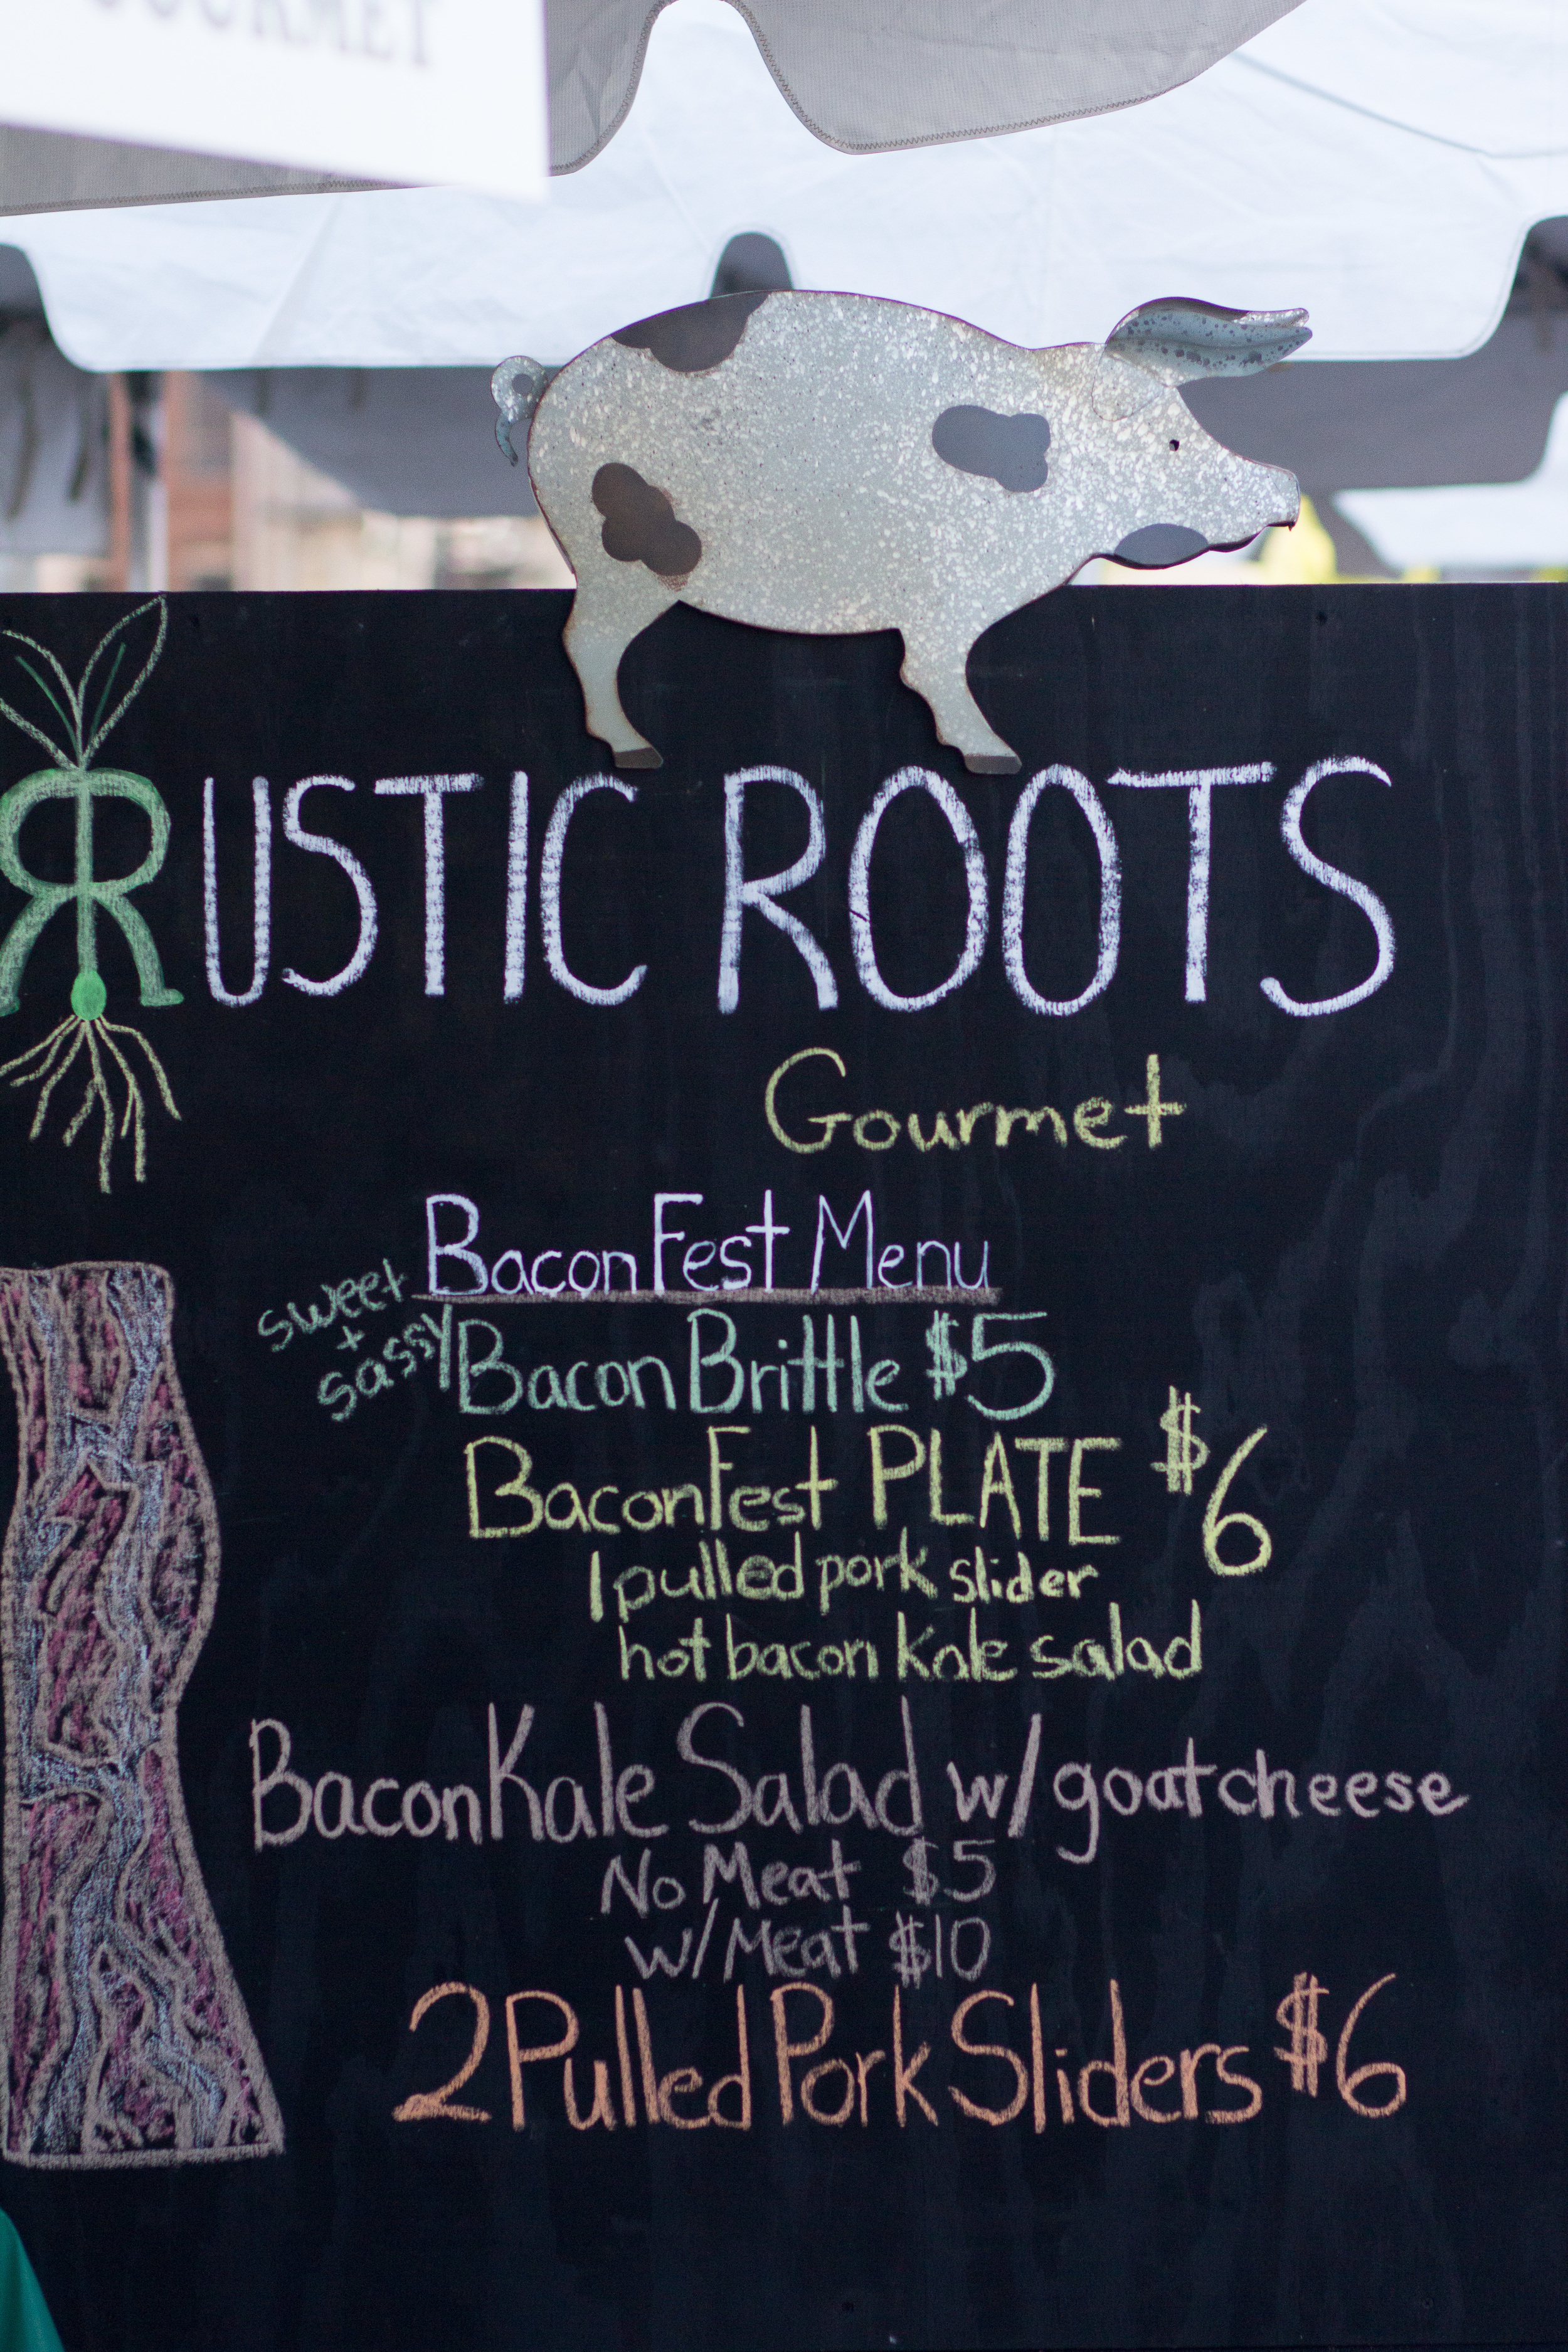 GOURMET
RUSTIC ROOTS
Gourmet
BaconFest Menu
sweet
+
sassy
Bacon Brittle $5
BaconFest PLATE $6
1 pulled pork slider
hot bacon kale salad
Bacon Kale Salad w/ goat cheese
No Meat $5
w/Meat $10
2 Pulled Pork Sliders $6